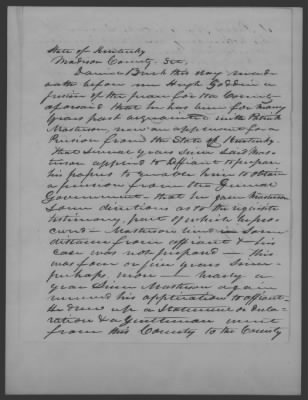 State of Kentucky
Madison County Sct.
Daniel Breck this day made
oath before me Hugh Goddin a
justice of the peace for the County
aforesaid that he has been for many
years past acquainted with Patrick
Masterson, now an applicant for a
Pension from the State of Kentucky.
That several years since said Mas-
terson applied to affiant to prepare
his papers to enable him to obtain
a pension from the General
Government, that he gave Masterson
some directions as to the requisite
testimony, part of which he pro-
cured - Masterson lived in some
distance from affiant & his
case was not prepared - This
was four or five years since -
perhaps more - nearly a
year since Masterson again
renewed his application to affiant.
He drew up a Statement or decla-
ration & a Gentleman went
from this County to the County